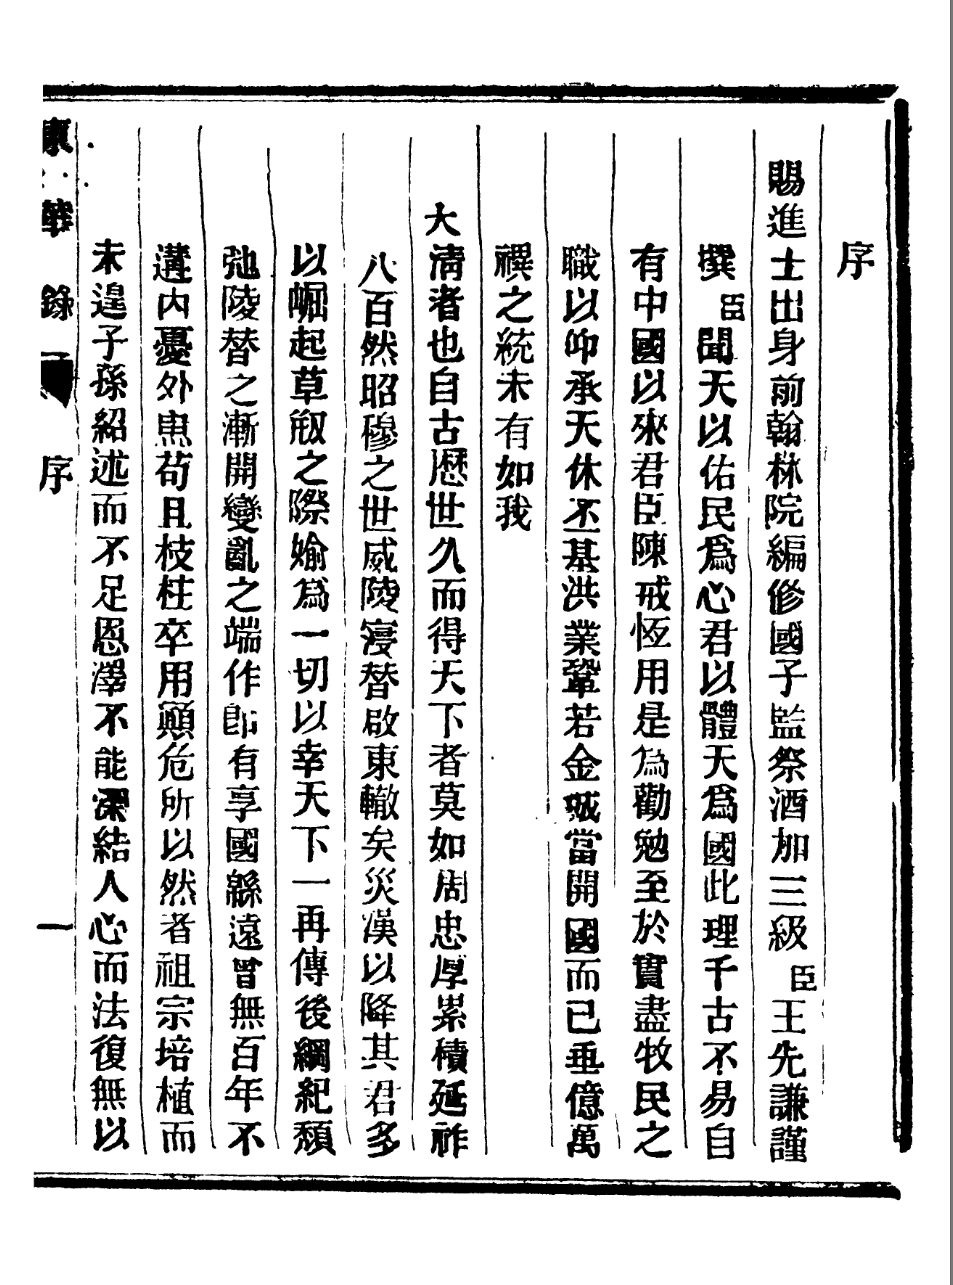 序
賜進士出身前翰林院編修國子監祭酒加三級臣王先謙謹
撰臣聞天以佑民爲心君以體天爲國此理千古不易自
有中國以來君臣陳戒恆用是爲勸勉至於實盡牧民之
職以仰承天休丕基洪業鞏若金城當開國而已垂億萬
禩之統未有如我
大清者也自古歷世久而得天下者莫如周忠厚累積延祚
八百然昭穆之世威陵寖替啟東轍矣災漢以降其君多
以崛起草創之際媮爲一切以幸天下一再傳後綱紀頹
弛陵替之漸開變亂之端作卽有享國緜遠曾無百年不
遘內憂外患苟且枝柱卒用顚危所以然者祖宗培植而
未遑子孫紹述而不足恩澤不能深結人心而法復無以
東華錄 序 一